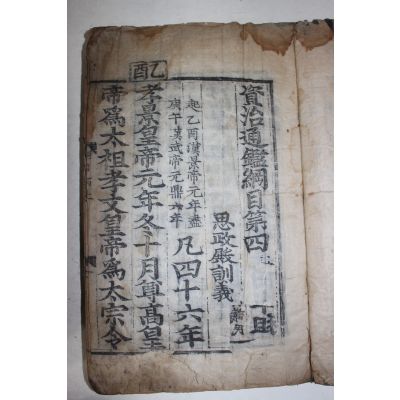 資治通鑑綱目第四
思政殿訓義
起乙酉漢景帝元年盡
庚午漢武帝元鼎六年
凡四十六年
乙酉
孝景皇帝元年冬十月尊髙皇
帝爲太祖孝文皇帝爲太宗令